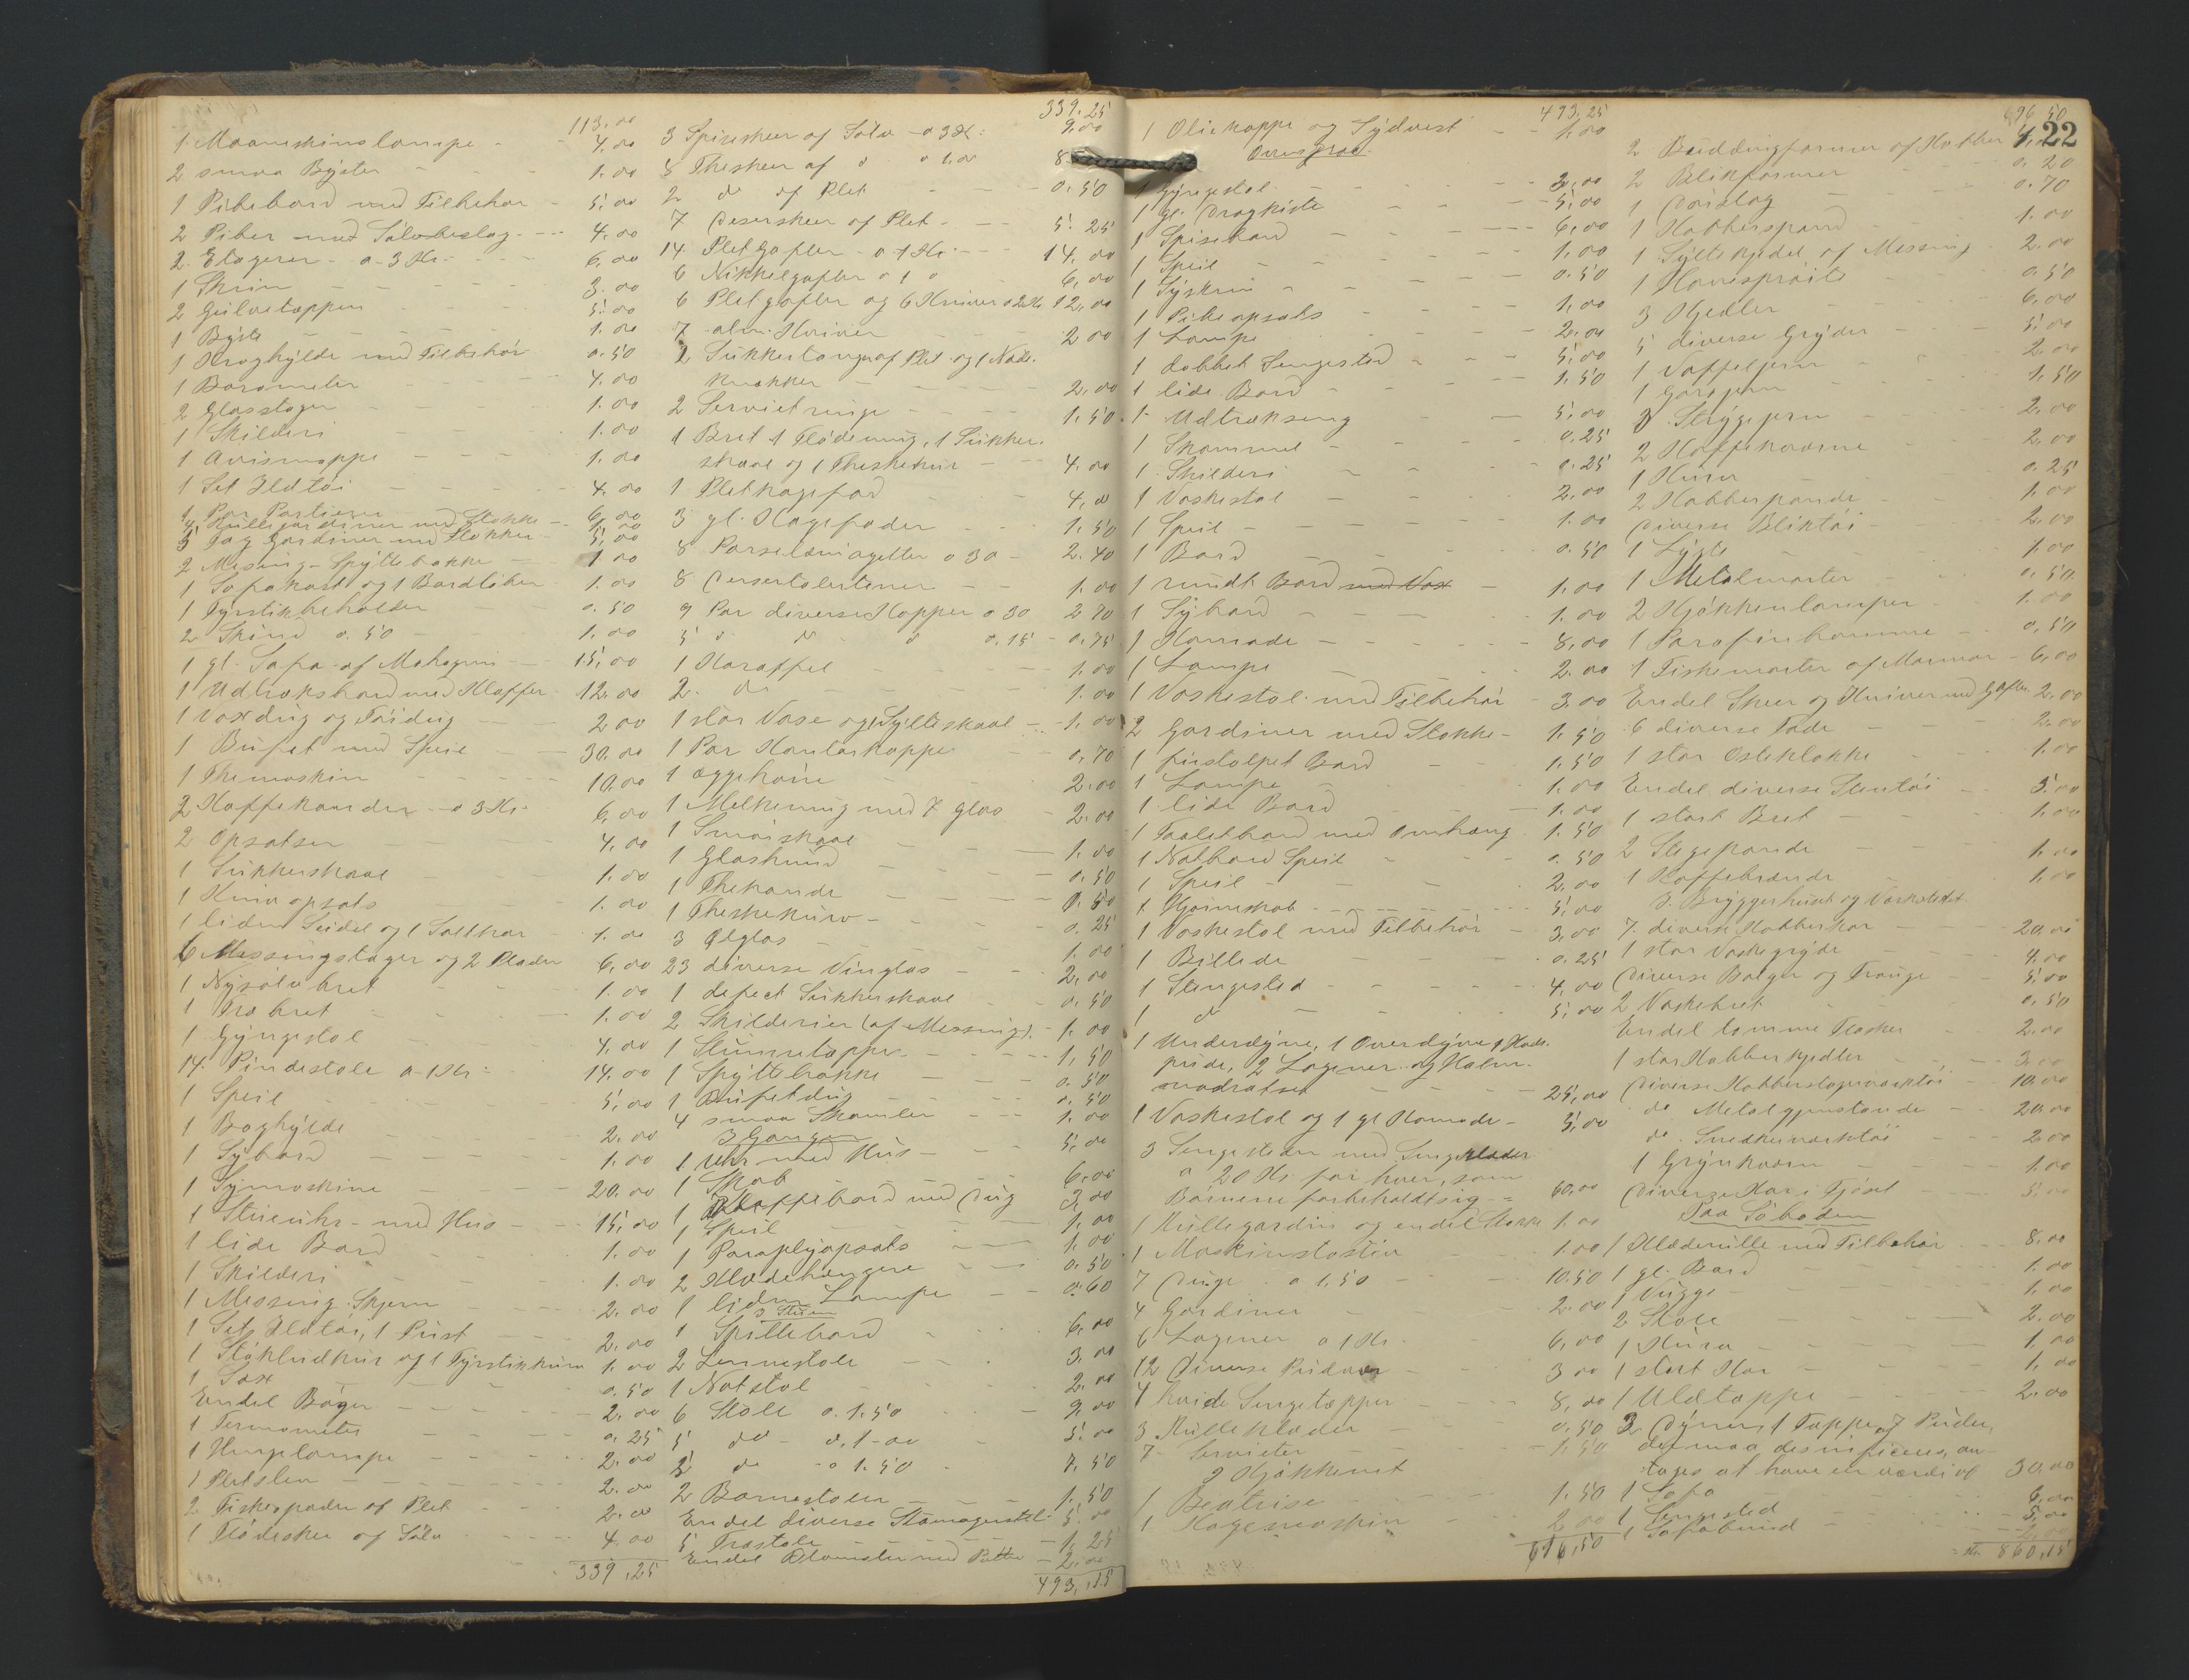 113.00
1 Maaneskinslampe - 4.00
2 smaa Byster - - - 1.00
1 Pibebord med Tilbehør - 5.00
2 Piber med Sølvbeslag - - - 4.00
2 Etagerer - a 3 Kr - - - 6.00
1 Skrin - - - - - 3.00
2 Gulvtæpper - - - 5.00
1 Byste - - - - 1.00
1 Kroghylde med Tilbehør 0.50
1 Barometer - - - - 4.00
2 Glasstager - - - - 1.00
1 Skilderi - - - 1.00
1 Avismappe - - - 1.00
1 Set Ildtøi - - - - 4.00
1 Par Portierer - 6.00
4 Rullegardiner med Stokke - 1.00
5 Fag Gardiner med Stokker - 5.00
2 Messing-Spyttebakke - 1.00
1 Sofakast og 1 Bordløber 1.00
1 Fyrstikbeholder - - 0.50
2 Skind 0.50 - - - 1.00
1 gl. Sofa af Mahogni - 15.00
1 Udtræksbord med Klaffer - 12.00
1 Voxdug og Tøidug - - 2.00
1 Bufet med Speil - - 30.00
1 Themaskin - - - - 10.00
2 Kaffekander - a 3 Kr - 6.00
2 Opsatser - - - - 4.00
1 Sukkerskaal - - - 1.00
1 Knivopsats - - - 1.00
1 liden Seidel og 1 Saltkar - 1.00
6 Messingstager og 2 Plader 6.00
1 Nysølvbret - - - 1.00
1 Træbret - - - 1.00
1 Gyngestol - - - 4.00
14 Pindestole a 1 Kr - 14.00
1 Speil - - - - 5.00
1 Boghylde - - - - 2.00
1 Sybord - - - - 1.00
1 Symaskine - - - - 20.00
1 Stueuhr - med Hus - - 15.00
1 lide Bord - - - 1.00
1 Skilderi - - - 1.00
1 Messing-Skjerm - - - 2.00
1 Set Ildtøi, 1 Pust - - 2.00
1 og 1 Fyrstikkurv 1.00
1 Sax - - - - 0.50
Endel Bøger - - - - 2.00
1 Termometer - - - 0.25
1 Hengelampe - - - - 2.00
1 Pletslev - - - - 2.00
2 Fiskespader af Plet - - 2.00
1 Flødeskee af Sølv - - - 4.00
339,25
339.25
3 Spiseskeer af Sølv - a 3 Kr. 9.00
8 Theskeer af do a 1.00 8.
2 do af Plet - - - 0.50
7 Desertskeer af Plet - - - 5.25
14 Plet Gafler - a 1 Kr - - 14.00
6 Nikkelgafler a 1 " 6.00
6 Pletgafler og 6 Kniver a 2 Kr 12.00
7 alm. Kniver - - - 2.00
2 Sukkertanger af Plet og 1 Nøde-
knækker - - - - 2.00
2 Servietringe - - - 1.50
1 Bret 1 Flødemug, 1 Sukker-
skaal og 1 Theskekurv - - 4.00
1 Pletkagefad - - 4.00
3 gl. Kagefader - - 1.50
8 Porselænsasjetter a 30 - 2.40
8 Deserttallerkener - - 1.00
9 Par diverse Kopper a 30 2.70
5 do do do a 0.15 - 0.75
1 Karaffel - - - - 1.00
2 do - - - - 1.00
1 stor Vase og 1 Sylteskaal - 1.00
1 Par Kontorkopper - - 0.70
1 Eggehøne - - - 2.00
1 Melkemug med 7 Glas - 2.00
1 Smørskaal - - - 1.00
1 Glashund - - - 0.50
1 Thekande - - - - 0.50
1 Theskekurv - - - - 0.25
3 Ølglas - - - - 1.00
23 diverse Vinglas - - 2.00
1 defect Sukkerskaal - - 0.50
2 Skilderier (af Messing) - 1.00
1 Stuemetæppe - - - 1.50
1 Spyttebakke - - - 0.50
1 Bufetdug - - - 0.50
4 smaa Skamler - - 1.00
I Gangen
1 Uhr med Hus - - 5.00
1 Skab - - - - 6.00
1 Klaffebord med Dug 3.00
1 Speil - - - - 1.00
1 Paraplyopsats - - 1.00
2 Klædehængere - - 0.50
1 liden Lampe - - 0.60
I Stuen
1 Spillebord - - - 6.00
2 Lænestole - - - 3.00
1 Natstol - - - 2.00
6 Stole a. 1.50 - - 9.00
5 do - a. 1.00 - 5.00
5 do - a 1.50 - 7.50
2 Barnestoler - - - 1.50
Endel diverse 5.00
5 Træstole - - - 1.25
Endel Blomster med Potter - 2.00
493,25
493.25
1 Oliekappe og Sydvest - - 1.00
Ovenpaa.
1 Gyngestol - - - - 2.00
1 gl. Dragkiste - - - - 5.00
1 Spisebord - - - - 6.00
1 Speil - - - - 1.00
1 Syskrin - - - - 0.50
1 Pibeopsats - - - - 1.00
1 Lampe - - - - 2.00
1 dobbelt Sengested - - 5.00
1 lide Bord - - - - 1.50
1 Udtrækseng - - 5.00
1 Skammel - - - 0.25
1 Skilderi - - - 0.25
1 Vaskestol - - - 2.00
1 Speil - - - - - 1.00
1 Bord - - - - 0.50
1 rundt Bord med Vox - 1.00
1 Sybord - - - - 1.00
1 Komode - - - - - 8.00
1 Lampe - - - - 2.00
1 Vaskestol med Tilbehør - 3.00
2 Gardiner med Stokke - 1.50
1 firstolpet Bord - - 1.50
1 Lampe - - - - 1.00
1 lide Bord - - - - 1.00
1 Toiletbord med Omhæng 1.50
1 Natbord Speil - - - 0.50
1 Speil - - - - 2.00
1 Hjørneskab - - - - 5.00
1 Vaskestol med Tilbehør - 3.00
1 Billede - - - - 0.25
1 Sengested - - - - 4.00
1 do - - - - 5.00
1 Underdyne, 1 Overdyne 1 Hoved-
pude, 2 Lagener og Halm-
madratset - - - - 25.00
1 Vaskestol og 1 gl Komode - 5.00
3 Sengesteder med Sengeklæder
a 20 Kr for hver, som
Børnene forbeholdt sig - = 60.00
1 Rullegardin og endel Stokke 1.00
1 Maskinstativ - - - 1.00
7 Duge a 1.50 - - - 10.50
4 Gardiner - - - 2.00
6 Lagener a 1 Kr. - - 6.00
12 Diverse Pudevar - - 3.00
4 hvide Sengetæpper - - - 8.00
3 Rulleklæder - - - 0.50
7 Servietter - - - - 1.50
I Kjøkkenet
1 Beatrise - - - - 1.50
1 Kagemaskin - - - 2.00
696,50
696.50
22
2 Buddingformer af Kobber
2 Blikformer - - - 0.20
1 Dørslag - - - 0.70
1 Kobberspand - - 1.00
1 Syltekjedel af Messing - 2.00
1 Havesprøite - - 0.50
3 Kjedler - - - 6.00
5 diverse Gryder - - 5.00
1 Vaffeljern - - - 2.00
1 Gorojern - - - 1.50
3 Strygejern - - - 2.00
2 Kaffekværne - - - 2.00
1 Kurv - - - - 0.25
2 Kobberpande - - - 1.00
Diverse Bliktøi - - - 2.00
1 Lygte - - - - 1.00
1 Metalmorter - - - 0.50
2 Kjøkkenlamper - - 1.00
1 Parafinkomme - 0.50
1 Fiskemorter af Marmor - 6.00
Endel Skeer og Kniver med Gafler 2.00
6 diverse Fade - - - 2.00
1 stor Osteklokke - - - 1.00
Endel diverse Stentøi - - 5.00
1 stort Bret - - - - 1.00
2 Stegepande - - - 1.00
1 Kaffebrænder - - - 1.00
I Bryggerhuset og Værkstedet
7 diverse Kobberkar - - - 20.00
1 stor Vaskegryde - - - 4.00
Diverse Balger og Trauge - - 5.00
2 Vaskebret - - - 0.50
Endel tomme Flasker - - 2.00
1 stor Kobberkjedler - - 3.00
Diverse Kobberslagerværktøi - 10.00
do Metalgjenstande - - 20.00
do Snedkerværktøi - - - 2.00
1 Grynkværn - - - 1.00
Diverse Kar i Fjøset - - 5.00
Paa Søboden
1 Klæderulle med Tilbehør - - 8.00
1 gl. Bord - - - - 1.00
1 Vugge - - - - 1.00
2 Stole - - - - 2.00
1 Kurv - - - - 1.00
1 stort Kar - - - 1.00
1 Uldtæppe - - - 2.00
3 Dyner, 1 Tæppe og 7 Puder,
der maa desinficeres, an-
tages at have en værdi af 30.00
1 Sofa - - - - 6.00
1 Sengested - - - - 5.00
1 - - - - 2.00
= Kr. 860,15